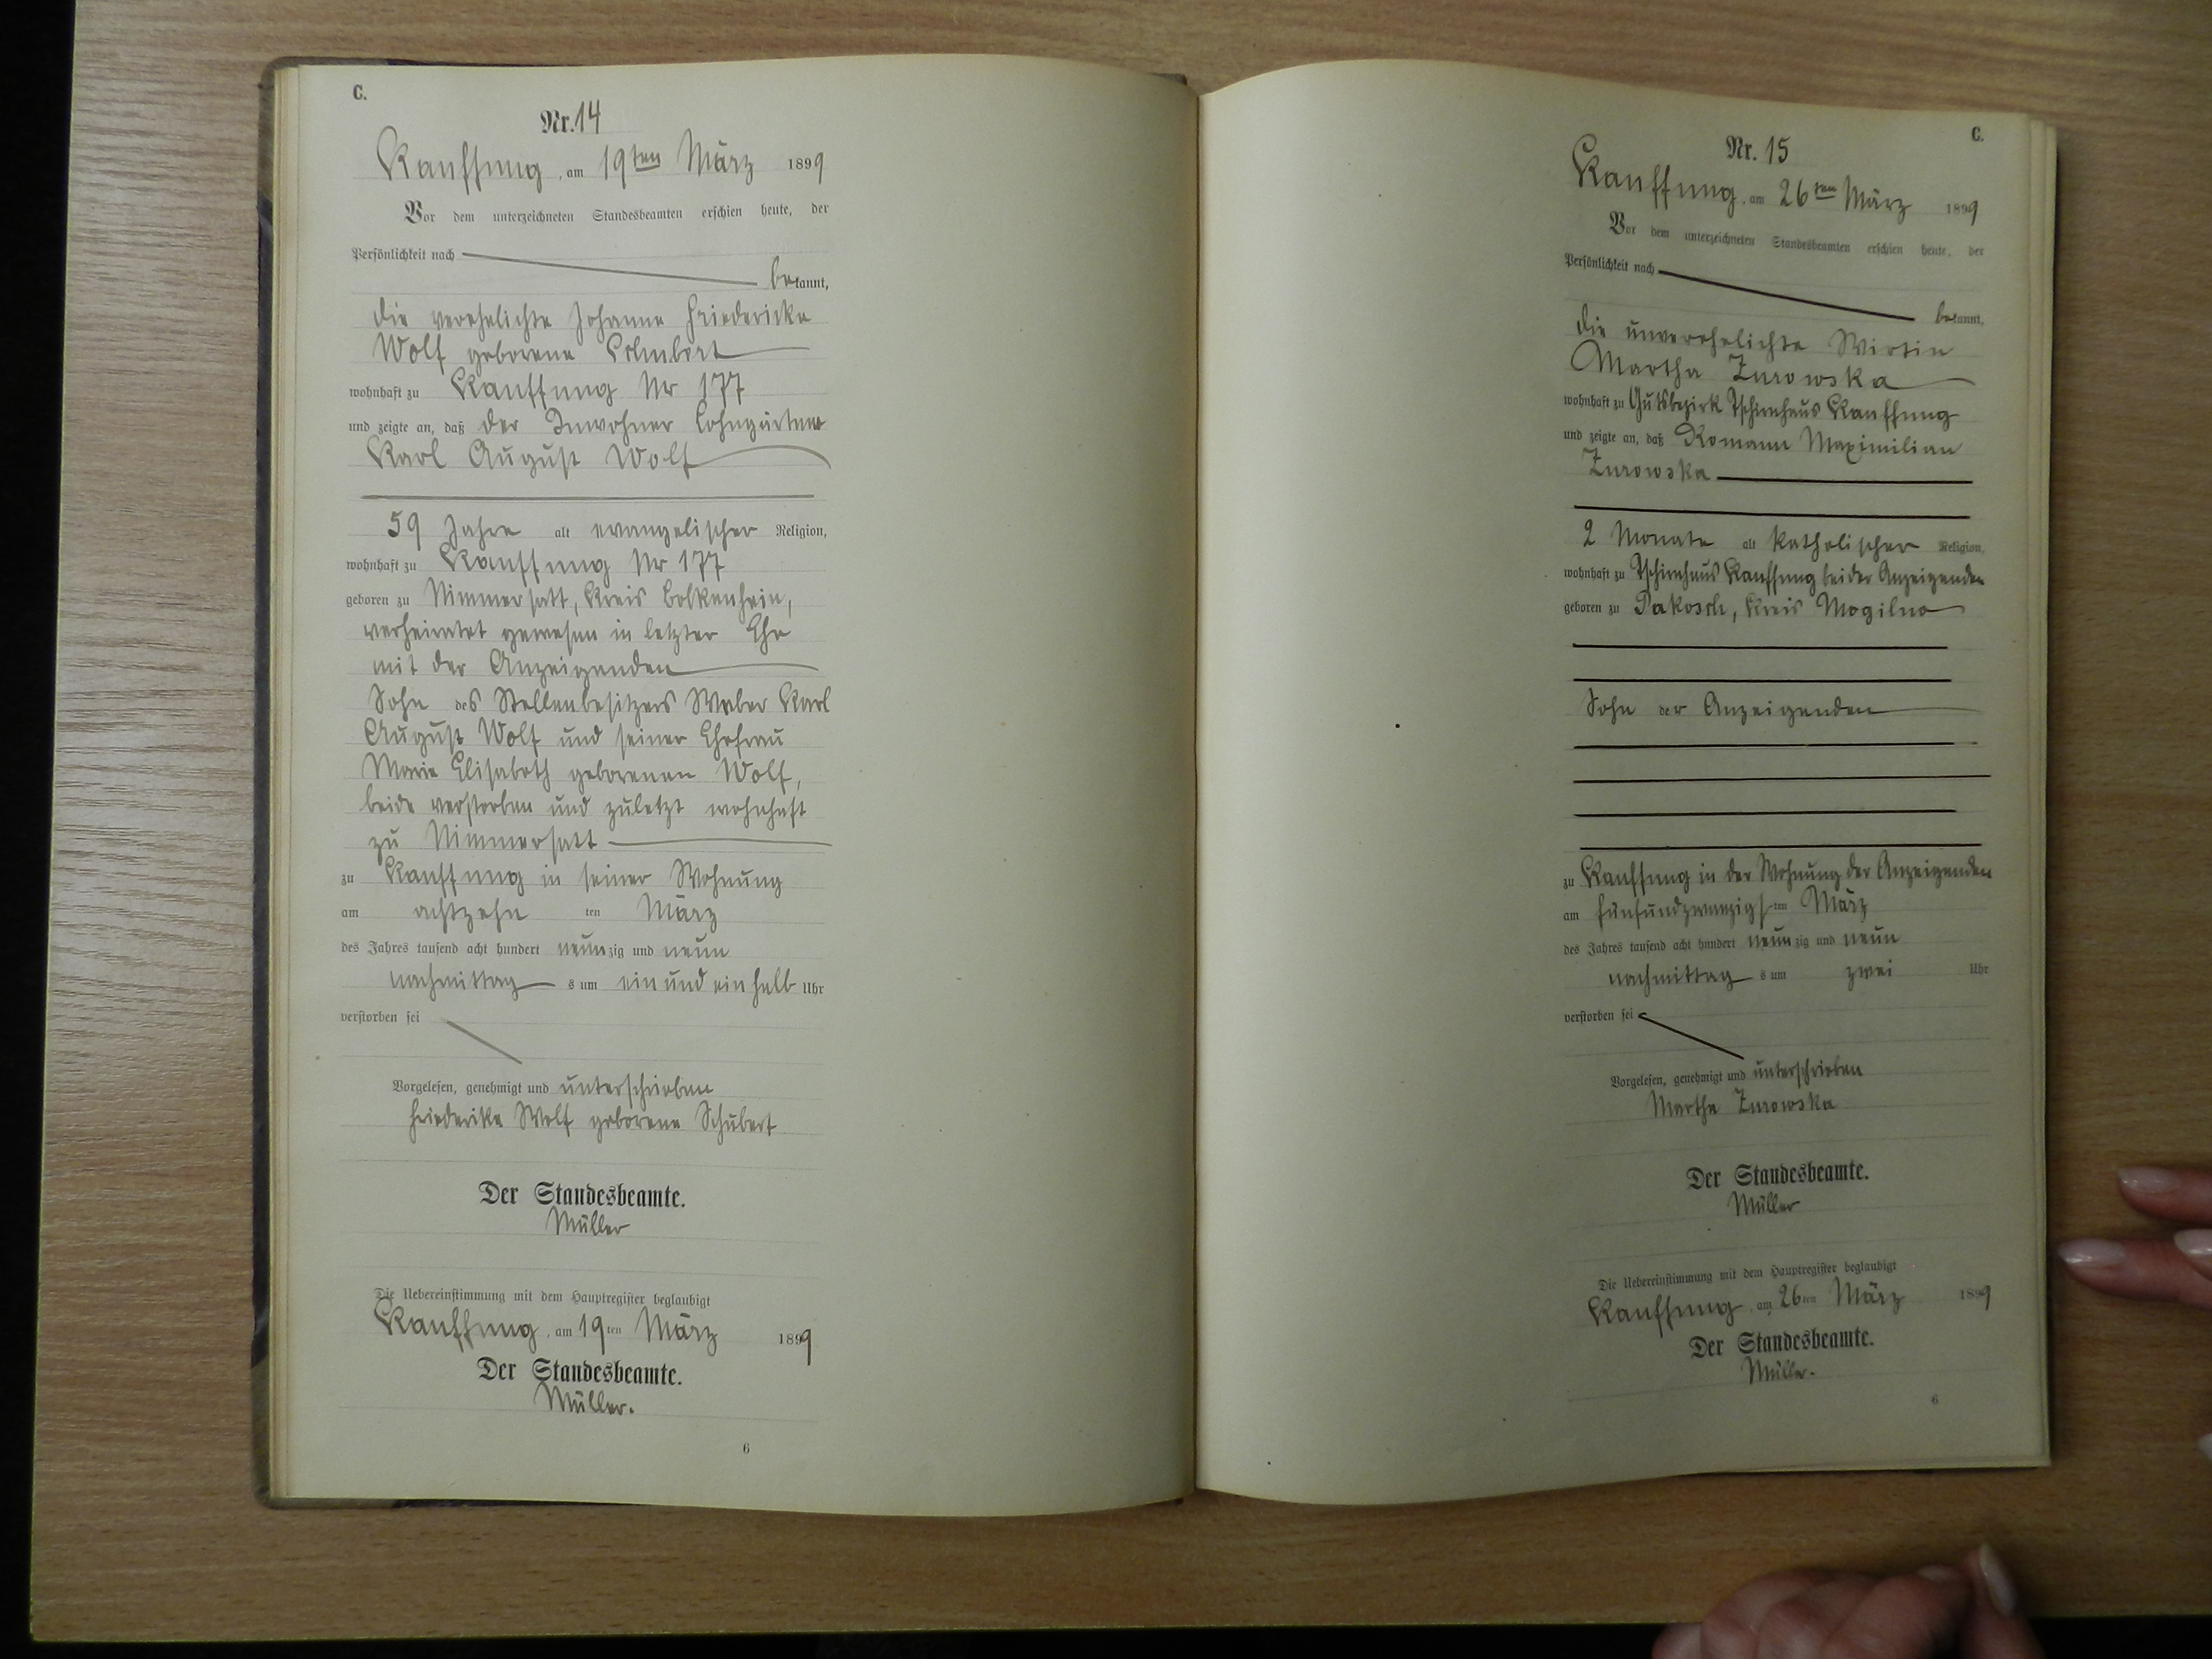 C.
Nr. 14
Kauffung, am 19ten März 1899
Vor dem unterzeichneten Standesbeamten erschien heute, der
Persönlichkeit nach
bekannt,
die verehelichte Johanne Friedericke
Wolf geborene
wohnhaft zu Kauffung Nr 177
und zeigte an, daß der Inwohner Lohngärtner
Karl August Wolf
59 Jahre alt evangelischer Religion,
wohnhaft zu Kauffung Nr 177
geboren zu Nimmersatt, Kreis Bolkenhein,
verheiratet gewesen in letzter Ehe
mit der Anzeigenden
Sohn des Stellenbesitzers Weber Karl
August Wolf und seiner Ehefrau
Marie Elisabeth geborenen Wolf,
beide verstorben und zuletzt wohnhaft
zu Nimmersatt
zu Kauffung in seiner Wohnung
am achtzehn ten März
des Jahres tausend acht hundert neunzig und neun
nachmittags um ein und ein halb Uhr
verstorben sei
Vorgelesen, genehmigt und unterschrieben
Friederike Wolf geborene Schubert
Der Standesbeamte.
Müller
Die Uebereinstimmung mit dem Hauptregister beglaubigt
Kauffung, am 19ten März 1899
Der Standesbeamte.
Müller.
6
C.
Nr. 15
Kauffung, am 26ten März 1899
Vor dem unterzeichneten Standesbeamten erschien heute, der
Persönlichkeit nach
bekannt,
die unverehelichte Wirtin
Martha Zurowska
wohnhaft zu Gutsbezirk Tschirnhaus Kauffung
und zeigte an, daß Romann Maximilian
Zurowska
2 Monate alt katholischer Religion,
wohnhaft zu Tschirnhaus Kauffung bei der Anzeigenden
geboren zu Pakosch, Kreis Mogilno
Sohn der Anzeigenden
zu Kauffung in der Wohnung der Anzeigenden
am fünfundzwanzigsten März
des Jahres tausend acht hundert neunzig und neun
nachmittags um zwei Uhr
verstorben sei
Vorgelesen, genehmigt und unterschrieben
Martha Zurowska
Der Standesbeamte.
Müller
Die Uebereinstimmung mit dem Hauptregister beglaubigt
Kauffung, am 26ten März 1899
Der Standesbeamte.
Müller.
6